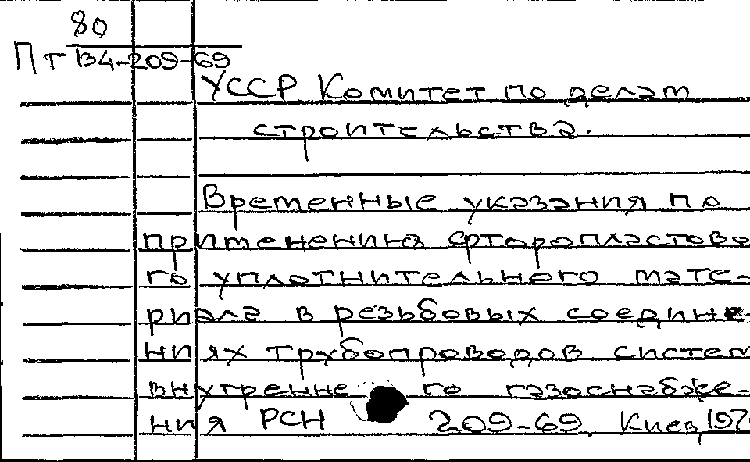 80
Пт В4-209-69
УССР Комитет по делам
строительства.
Временные указания по
применения фторопластово
го уплотнительного мате-
риала в резьбовых соедине-
ниях трубопроводов систем
внутреннего газоснабже-
ния РСН 209-69. Киев,